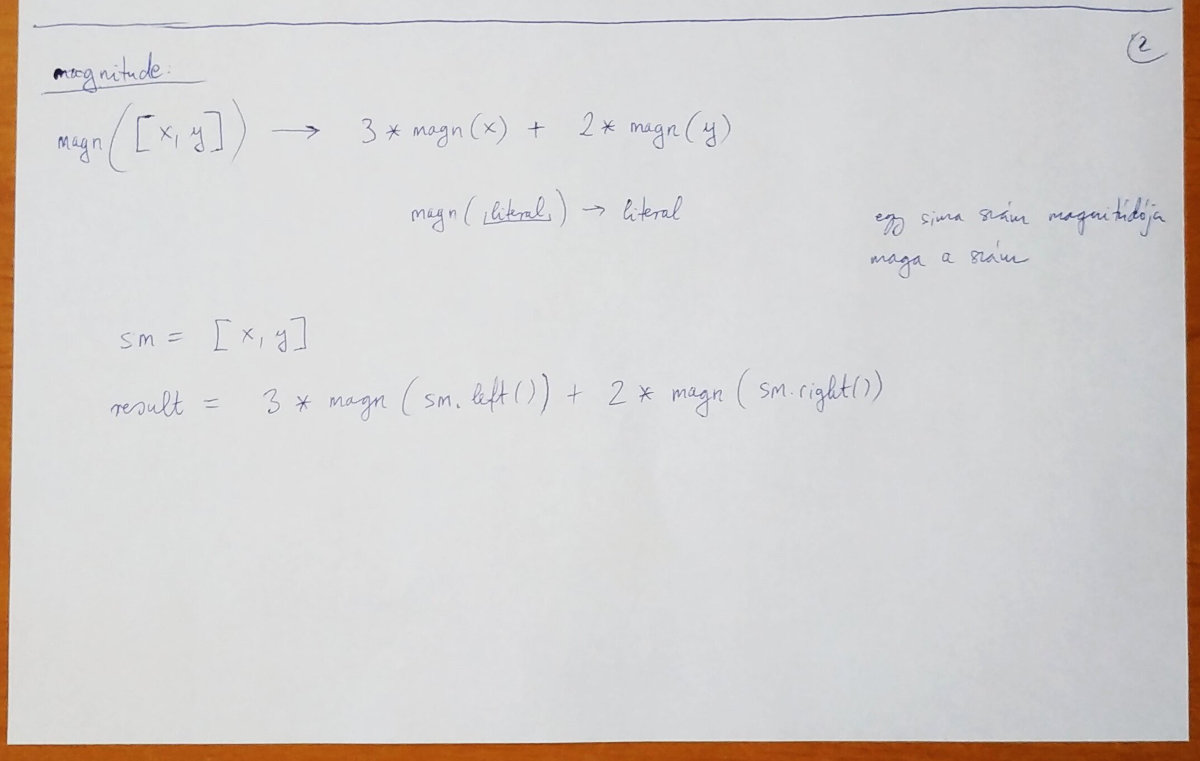 2
magnitude:
magn([x, y]) → 3 * magn(x) + 2 * magn(y)
magn(literal) → literal
egy sima szám magnitúdója
maga a szám
sm = [x, y]
result = 3 * magn(sm.left()) + 2 * magn(sm.right())